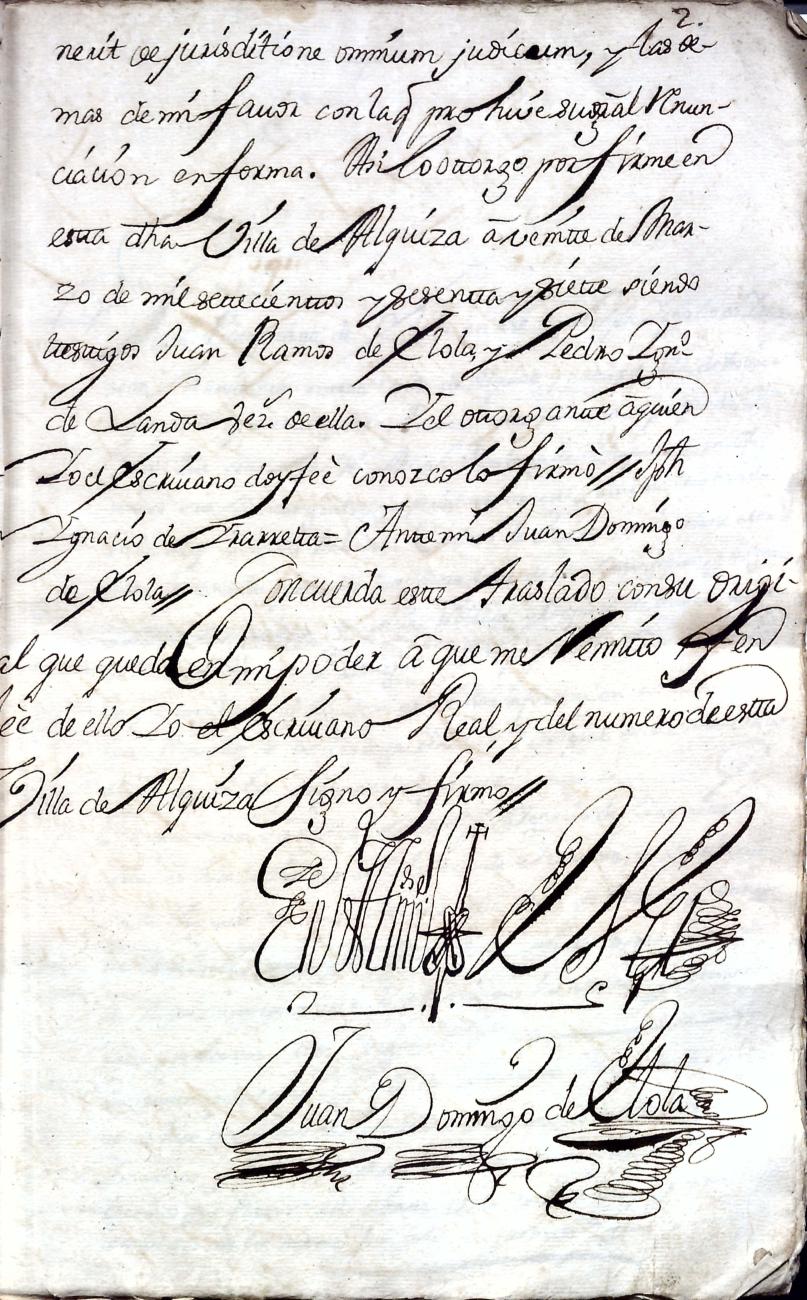 2.
nerit de jurisditione omnium judicum, y las de-
mas de mi favor con la q prohive su gral Renun-
ciacion en forma. Asi lo ottorgo por firme en
estta dha Villa de Alquiza a veintte de Mar-
zo de mil settecienttos y sesentta y siette siendo
ttesttigos Juan Ramos de Elola, y Pedro Ygnº
de Landa vezs de ella. Y el ottorgantte a quien
Yo el Escrivano doy feè conozco lo firmò // Jph
Ygnacio de Yrarretta = Antte mi Juan Domingo
de Elola // Concuerda estte traslado con su origi-
al que queda en mi poder a que me Remitto y en
eè de ello Yo el Escrivano Real y del numero de estta
Villa de Alquiza signo y firmo //
En Testimº de Verd
Juan Domingo de Elola